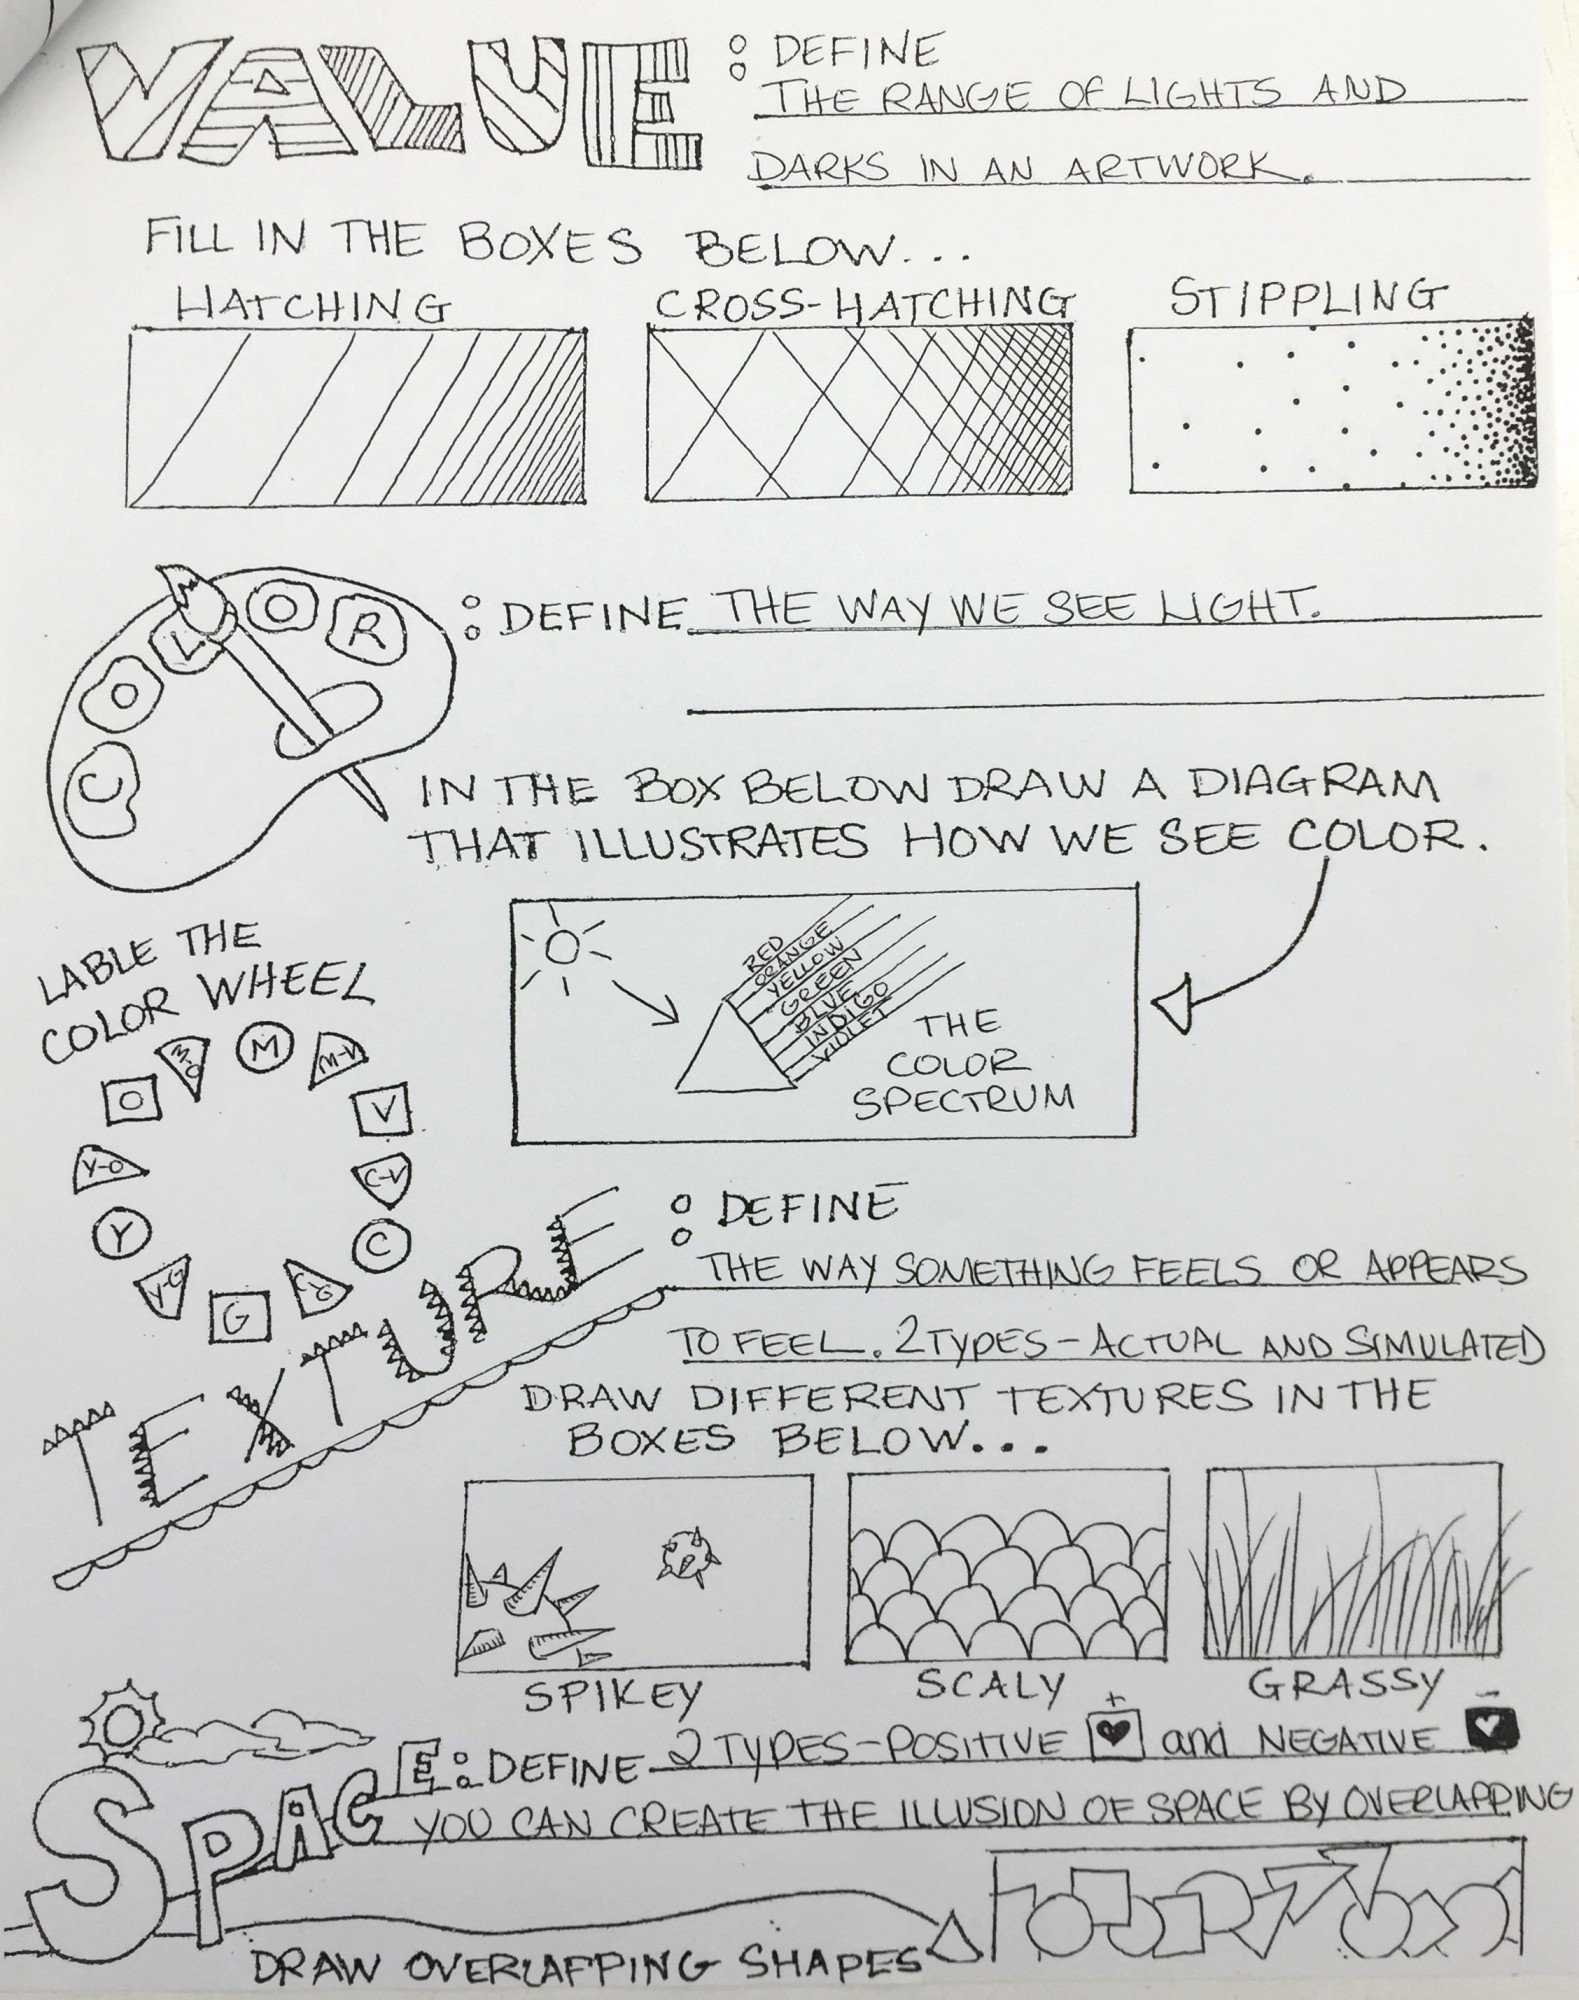 VALUE : DEFINE
THE RANGE OF LIGHTS AND
DARKS IN AN ARTWORK.
FILL IN THE BOXES BELOW...
HATCHING
CROSS-HATCHING
STIPPLING
COLOR : DEFINE THE WAY WE SEE LIGHT.
IN THE BOX BELOW DRAW A DIAGRAM
THAT ILLUSTRATES HOW WE SEE COLOR.
RED
ORANGE
YELLOW
GREEN
BLUE
INDIGO
VIOLET
THE
COLOR
SPECTRUM
LABLE THE
COLOR WHEEL
M
M-V
V
C-V
C
C-G
G
Y-G
Y
Y-O
O
M-O
TEXTURE : DEFINE
THE WAY SOMETHING FEELS OR APPEARS
TO FEEL. 2 TYPES - ACTUAL AND SIMULATED
DRAW DIFFERENT TEXTURES IN THE
BOXES BELOW...
SPIKEY
SCALY
GRASSY
SPACE: DEFINE 2 TYPES - POSITIVE + and NEGATIVE -
YOU CAN CREATE THE ILLUSION OF SPACE BY OVERLAPPING
DRAW OVERLAPPING SHAPES